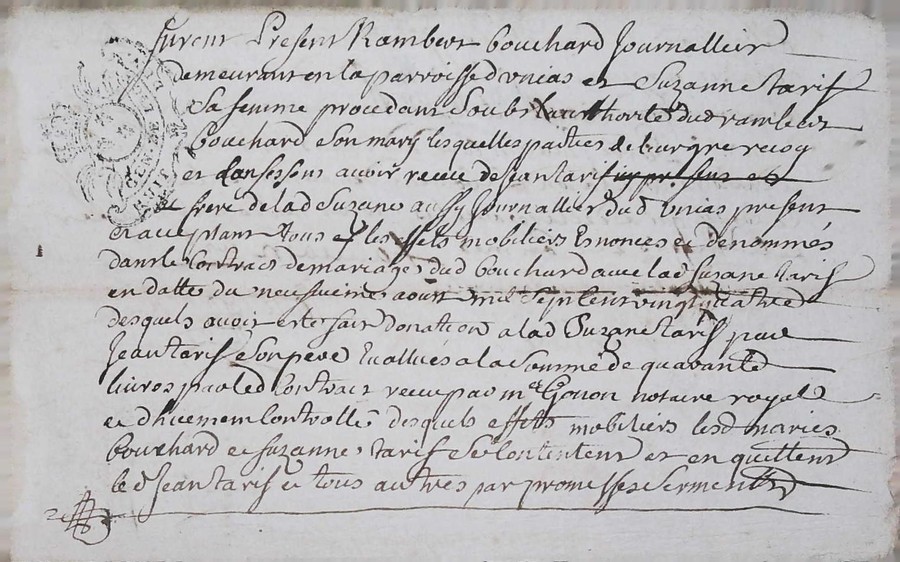 furent Present Rambert bouchard Journallier
demeurant en la parroisse d unias et Suzanne tarif
Sa femme procedant Soubs l'authorité dud rambert
bouchard Son mary lesquelles parties de leur gre recog
et confessent avoir receu de Jean tarif
frere de lad Suzane aussy Journallier dud unias present
et acceptant tous et les effets mobiliers Enonces et denommés
dans le Contract de mariage dud bouchard avec lad Suzane tarif
en datte du neufvieme aoust mil Sept cent vingt quatre
desquels avoir esté fait donation a lad Suzane tarif par
Jean tarif Son pere Evallués a la Somme de quarante
livres par led Contract receu par me Gonon notaire royal
et dhuement Controllé desquels effets mobiliers lesd maries
bouchard et suzanne tarif Se Contentent et en quittent
led Jean tarif et tous autres par promesses Serment